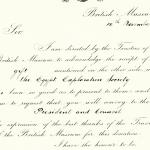 British Museum
Sir
I am directed by the Trustees of
British Museum to acknowledge the receipt of
gift mentioned in the other side,
the Egypt Exploration Society
been so good as to present to them: and
you to request that you will convey to the
President and Council
expression of the best thanks of the Trustees
of the British Museum for this donation
I have the honour to be